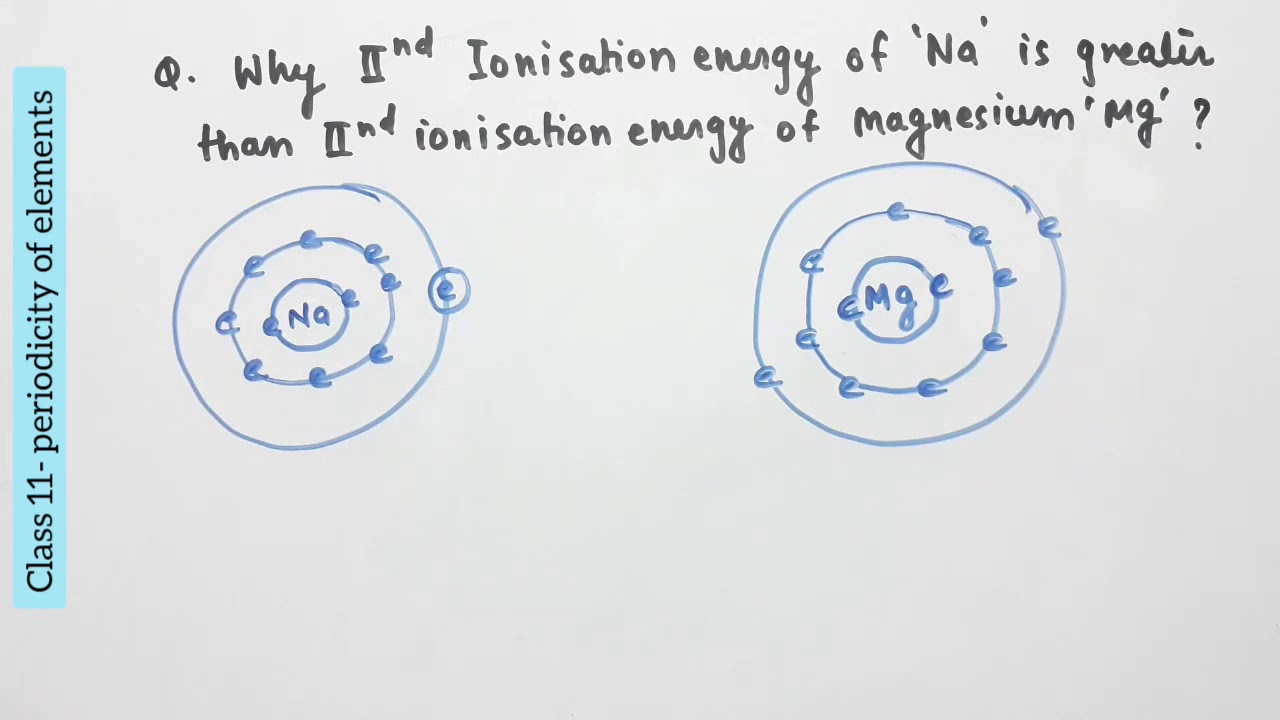 Class 11- periodicity of elements
Q. Why IInd Ionisation energy of 'Na' is greater
than IInd ionisation energy of magnesium 'Mg' ?
e
e
e
e
e
e
e
e
e
Na
e
e
e
e
e
e
e
e
Mg
e
e
e
e
e
e